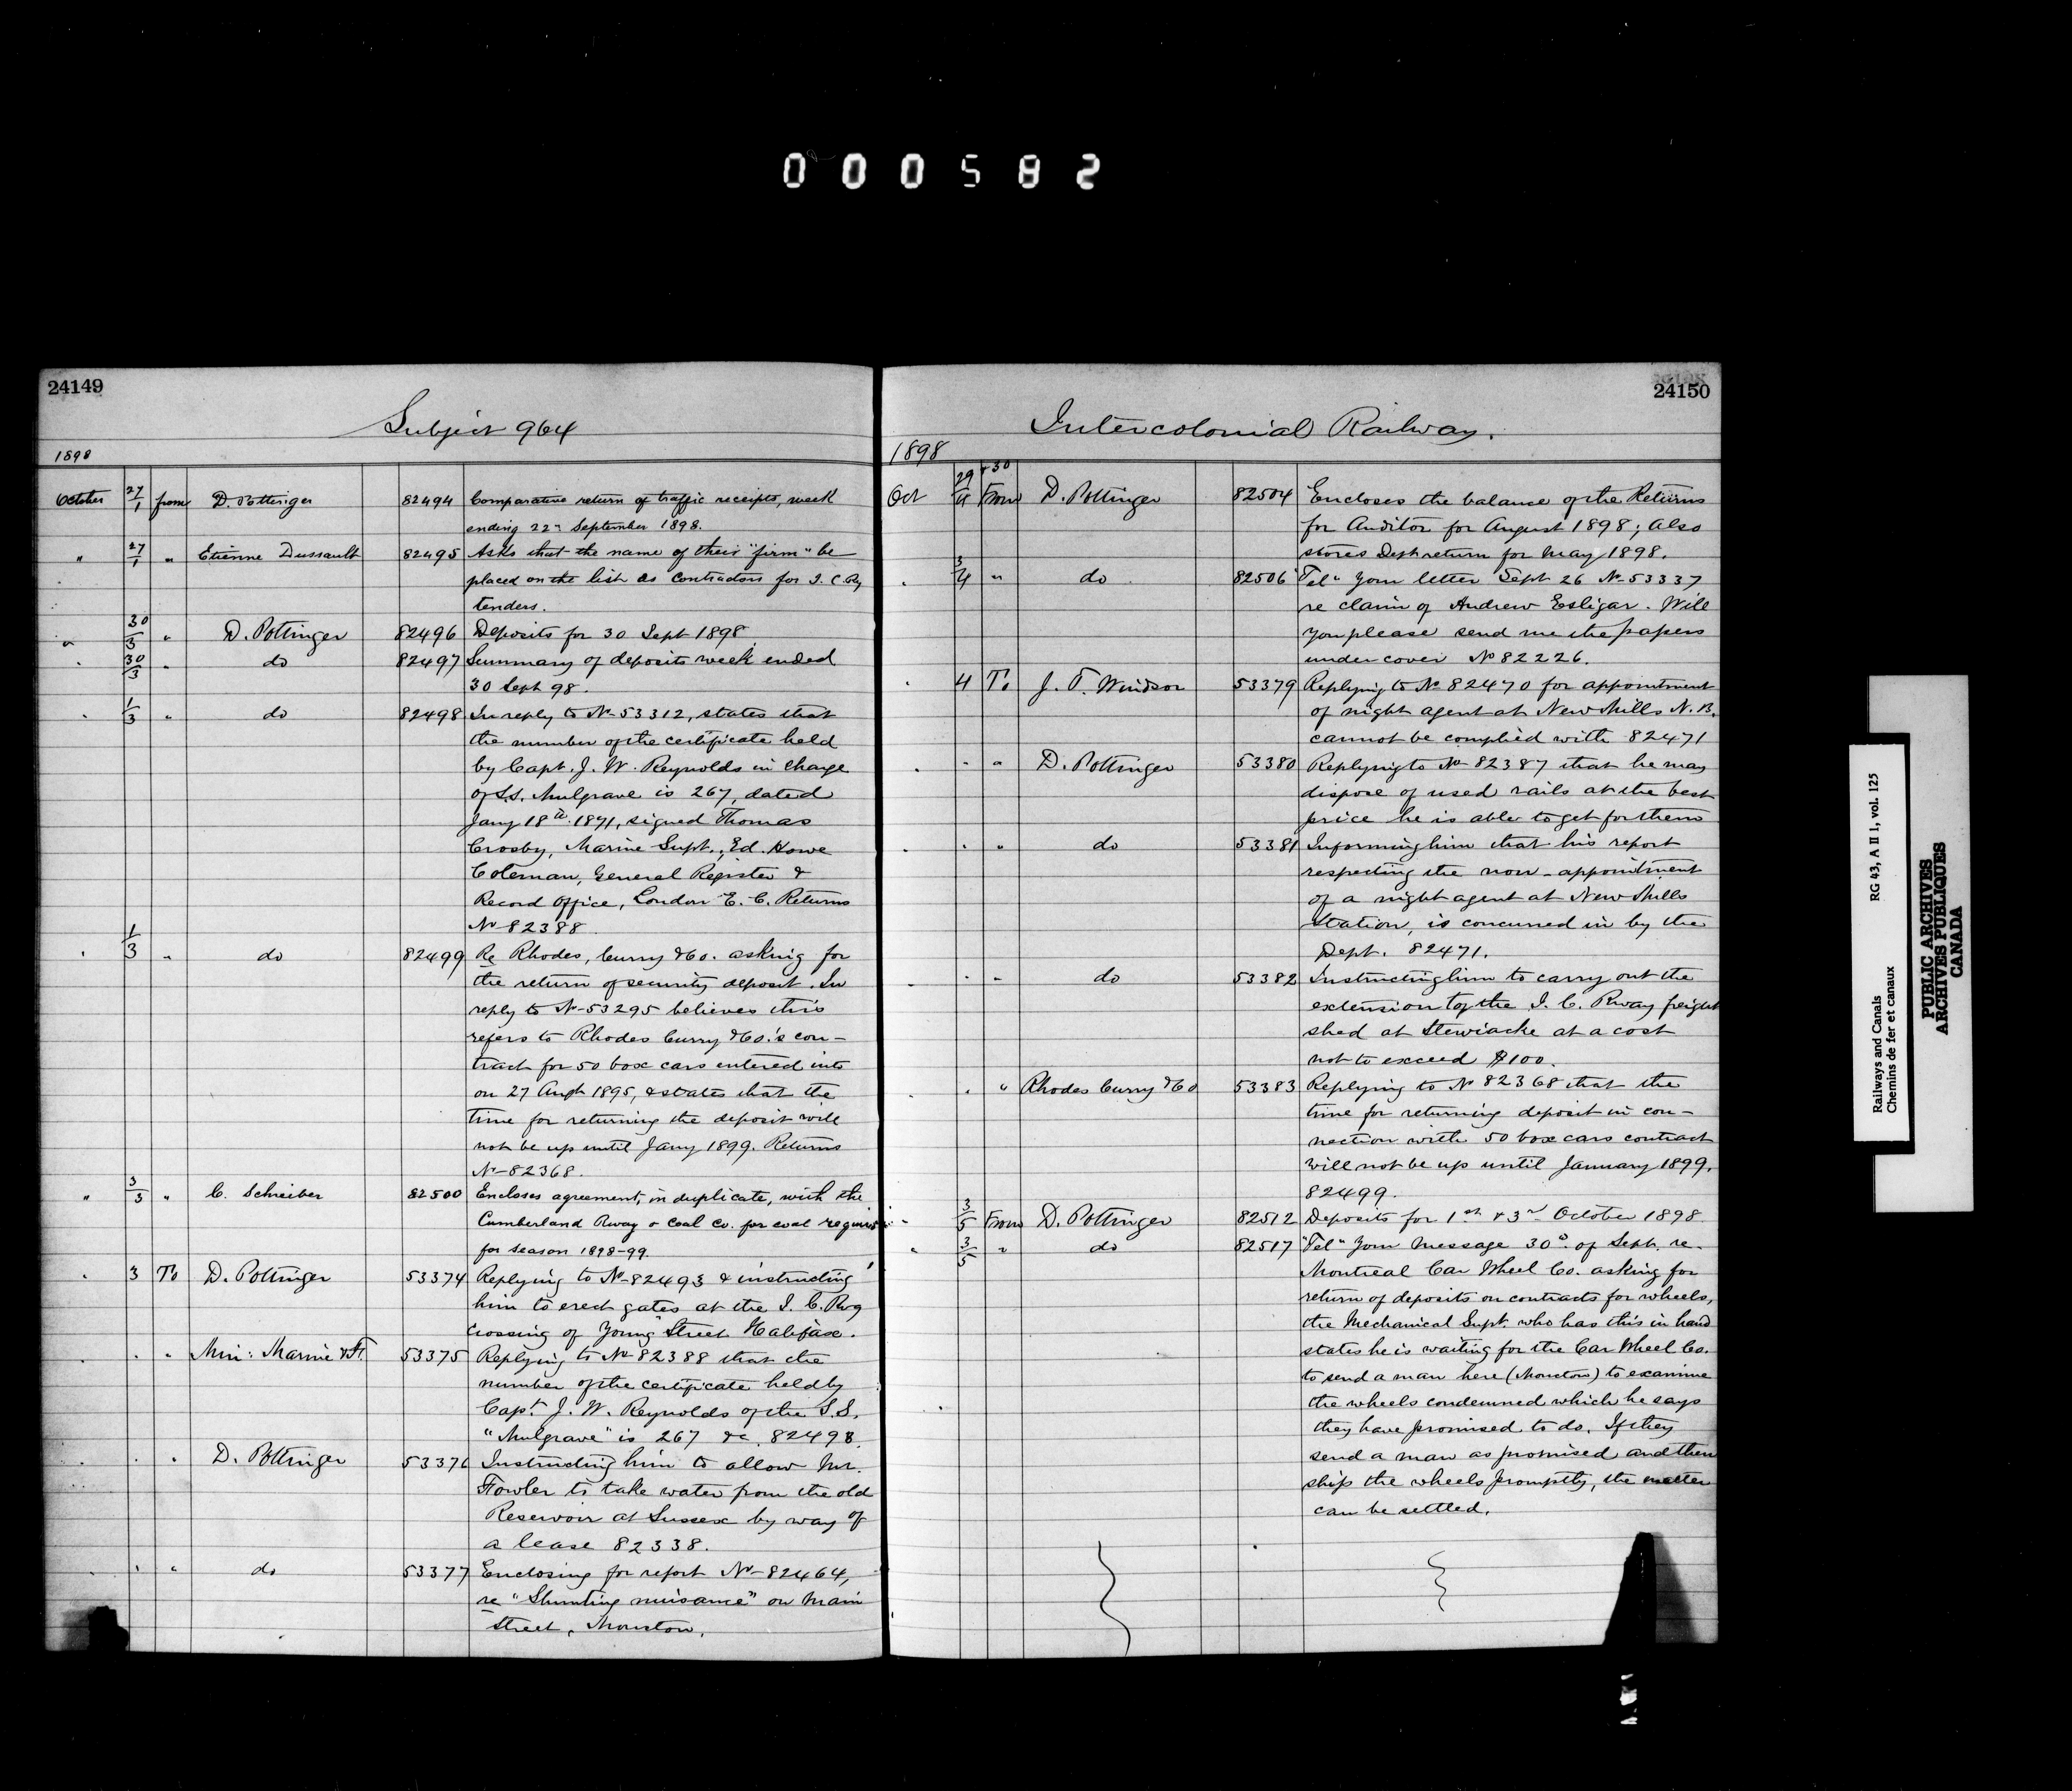 000582
24149
Subject 964
1898
October 27/1 from D. Pottinger 82494 Comparative return of traffic receipts, week
ending 22nd September 1898.
" 27/1 " Etienne Dussault 82495 Asks that the name of their "firm" be
placed on the list as contractors for I. C. Ry
tenders.
" 30/3 " D. Pottinger 82496 Deposits for 30 Sept 1898
" 30/3 " do 82497 Summary of deposits week ended
30 Sept 98.
" 1/3 " do 82498 In reply to No 53312, states that
the number of the certificate held
by Capt. J. W. Reynolds in charge
of S.S. Mulgrave is 267, dated
Jany 18th 1871, signed Thomas
Crosby, Marine Supt., Ed. Howe
Coleman, General Register &
Record Office, London E. C. Returns
No 82388.
" 1/3 " do 82499 Re Rhodes, Curry & Co. asking for
the return of security deposit. In
reply to No 53295 believes this
refers to Rhodes Curry & Co.'s con-
tract for 50 box cars entered into
on 27 Augt 1895, & states that the
time for returning the deposit will
not be up until Jany 1899. Returns
No 82368.
" 3/3 " C. Schreiber 82500 Encloses agreement, in duplicate, with the
Cumberland Rway & Coal Co. for coal required
for season 1898-99.
" 3 To D. Pottinger 53374 Replying to No 82493 & instructing
him to erect gates at the I. C. Rwy
crossing of Young Street Halifax.
" " " Min: Marine & F. 53375 Replying to No 82388 that the
number of the certificate held by
Capt J. W. Reynolds of the S.S.
"Mulgrave" is 267 &c. 82498.
" " " D. Pottinger 53376 Instructing him to allow Mr.
Fowler to take water from the old
Reservoir at Sussex by way of
a lease 82338.
" " " do 53377 Enclosing for report No 82464,
re "Shunting nuisance" on Main
Street, Moncton.
24150
Intercolonial Railway.
1898
Oct 29 & 30/4 From D. Pottinger 82504 Encloses the balance of the Returns
for Auditor for August 1898; also
stores Dept return for May 1898.
" 3/4 " do 82506 "Tel" Your letter Sept 26 No 53337
re claim of Andrew Esligar. Will
you please send me the papers
under cover No 82226.
" 4 To J. F. Windsor 53379 Replying to No 82470 for appointment
of night agent at New Mills N. B.
cannot be complied with 82471
" " " D. Pottinger 53380 Replying to No 82387 that he may
dispose of used rails at the best
price he is able to get for them
" " " do 53381 Informing him that his report
respecting the non-appointment
of a night agent at New Mills
Station, is concurred in by the
Dept. 82471.
" " " do 53382 Instructing him to carry out the
extension to the I. C. Rway freight
shed at Stewiacke at a cost
not to exceed $100.
" " " Rhodes Curry & Co 53383 Replying to No 82368 that the
time for returning deposit in con-
nection with 50 box cars contract
will not be up until January 1899.
82499.
" 3/5 From D. Pottinger 82512 Deposits for 1st & 3rd October 1898
" 3/5 " do 82517 "Tel" Your message 30th of Sept. re.
Montreal Car Wheel Co. asking for
return of deposits on contracts for wheels,
the Mechanical Supt. who has this in hand
states he is waiting for the Car Wheel Co.
to send a man here (Moncton) to examine
the wheels condemned which he says
they have promised to do. If they
send a man as promised and then
ship the wheels promptly, the matter
can be settled.
Railways and Canals RG 43, A II 1, vol. 125
Chemins de fer et canaux
PUBLIC ARCHIVES
ARCHIVES PUBLIQUES
CANADA